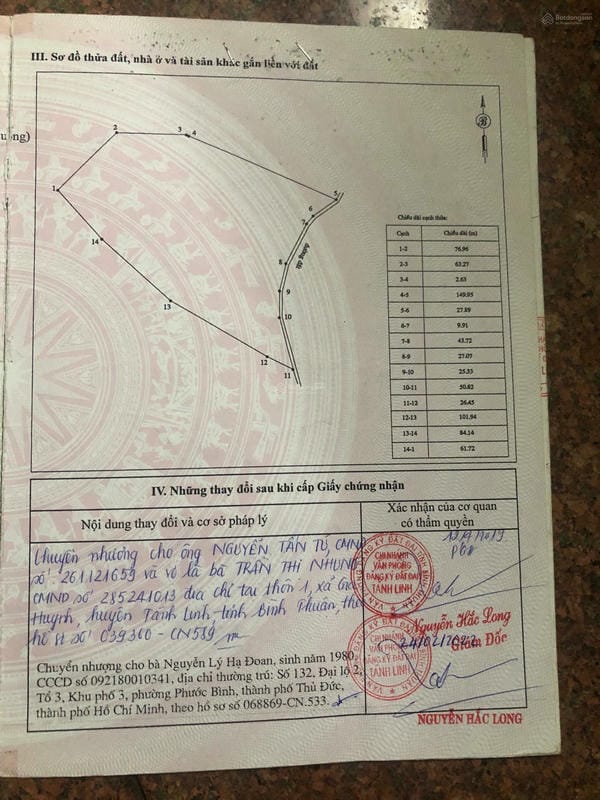 Batdongsan
III. Sơ đồ thửa đất, nhà ở và tài sản khác gắn liền với đất
B
1
2
3
4
5
6
7
8
9
10
11
12
13
14
đường đất
Chiều dài cạnh thửa:
Cạnh Chiều dài (m)
1-2 76.96
2-3 63.27
3-4 2.63
4-5 149.95
5-6 27.89
6-7 9.91
7-8 43.72
8-9 27.07
9-10 25.33
10-11 50.82
11-12 26.45
12-13 101.94
13-14 84.14
14-1 61.72
IV. Những thay đổi sau khi cấp Giấy chứng nhận
Nội dung thay đổi và cơ sở pháp lý
Xác nhận của cơ quan
có thẩm quyền
Chuyển nhượng cho ông NGUYỄN TẤN TÚ, CMND
số: 261121659 và vợ là bà TRẦN THỊ NHUNG
CMND số 285241013 địa chỉ tại thôn 1, xã Gia
Huynh, huyện Tánh Linh, tỉnh Bình Thuận, theo
hồ sơ số 039360-CN589
Chuyển nhượng cho bà Nguyễn Lý Hạ Đoan, sinh năm 1980,
CCCD số 092180010341, địa chỉ thường trú: Số 132, Đại lộ 2,
Tổ 3, Khu phố 3, phường Phước Bình, thành phố Thủ Đức,
thành phố Hồ Chí Minh, theo hồ sơ số 068869-CN.533.
CHI NHÁNH
VĂN PHÒNG
ĐĂNG KÝ ĐẤT ĐAI
TÁNH LINH
Nguyễn Hắc Long
24/02/2022
Giám Đốc
CHI NHÁNH
VĂN PHÒNG
ĐĂNG KÝ ĐẤT ĐAI
TÁNH LINH
NGUYỄN HẮC LONG